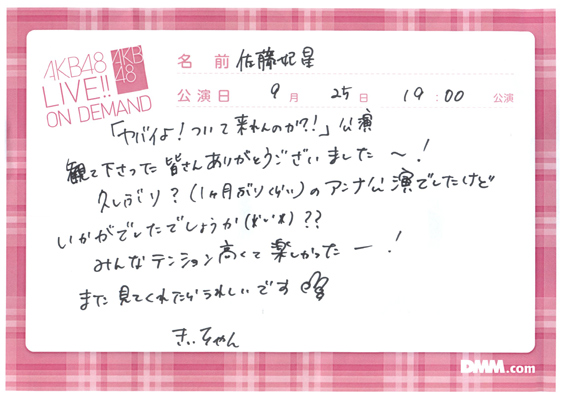 AKB48
LIVE!!
ON DEMAND
AKB
48
名前 佐藤妃星
公演日 9月 25日 19:00 公演
「ヤバイよ!ついて来れんのか?!」公演
観て下さった皆さんありがとうございました〜!
久しぶり?(1ヶ月ぶりくらい)のアンナ公演でしたけど
いかがでしたでしょうか
??
みんなテンション高くて楽しかったー!
また見てくれたらうれしいです
きぃちゃん
DMM.com